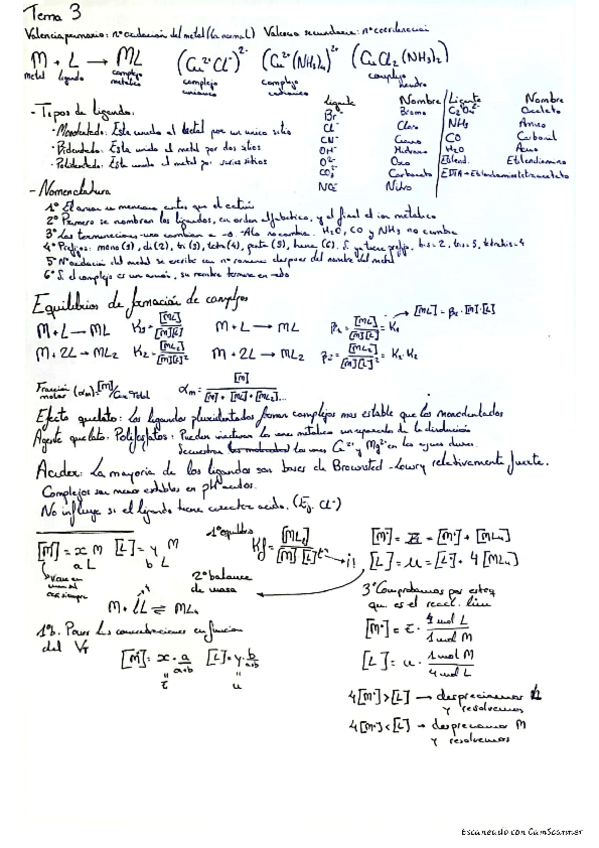 Tema 3
Valencia primaria: nº oxidación del metal (la normal) Valencia secundaria: nº coordinación
M + L → ML (Cu²⁺Cl⁻)²⁻ (Cu²⁺(NH₃)₄)²⁺ (CuCl₂(NH₃)₂)
metal ligando complejo metálico complejo aniónico complejo catiónico complejo neutro
- Tipos de ligando:
· Monodentado: Esta unido al metal por un unico sitio
· Bidentado: Esta unido al metal por dos sitios
· Polidentado: Esta unido al metal por varios sitios
Ligante Nombre Ligante Nombre
Br⁻ Bromo C₂O₄²⁻ Oxalato
Cl⁻ Cloro NH₃ Amino
CN⁻ Ciano CO Carbonil
OH⁻ Hidroxo H₂O Acuo
O²⁻ Oxo Etilend. Etilendiamino
CO₃²⁻ Carbonato EDTA → Etilendiaminotetraacetato
NO₂⁻ Nitro
- Nomenclatura
1º El anion se menciona antes que el catión
2º Primero se nombran los ligandos, en orden alfabetico, y al final el ion metalico
3º Las terminaciones -uro cambian a -o. -Ato no cambia. H₂O, CO y NH₃ no cambia
4º Prefijos: mono(1), di(2), tri(3), tetra(4), penta(5), hexa(6). Si ya tiene prefijo, bis=2, tris=3, tetrakis=4
5º Nº oxidación del metal se escribe con nº romano despues del nombre del metal
6º Si el complejo es un anion, su nombre termina en -ato
Equilibrios de formación de complejos
M + L → ML K₁ = [ML]/[M][L] M + L → ML β₁ = [ML]/[M][L] = K₁ → [ML] = β₁·[M]·[L]
M + 2L → ML₂ K₂ = [ML₂]/[M][L]² M + 2L → ML₂ β₂ = [ML₂]/[M][L]² = K₁·K₂
Fracción molar (αm) = [M]/Cm total αm = [M]/[M]+[ML]+[ML₂]...
Efecto quelato: Los ligandos pluridentados forman complejos mas estable que los monodentados
Agente quelato: Polifosfatos: Pueden inactivar los iones metalicos sin separarlo de la disolución
Secuestran los iones Ca²⁺ y Mg²⁺ en las aguas duras.
Acidez: La mayoria de los ligandos son bases de Brownsted-Lowry relativamente fuerte.
Complejos son menos estables en pH acidos.
No influye si el ligando tiene caracter acido. (Ej. Cl⁻)
[M] = x M [L] = y M
a L b L
M + 4L ⇌ ML₄
1ºb. Poner las concentraciones en funcion
del VT
[M] = x·a/a+b [L] = y·b/a+b
1º equilibrio
Kf = [ML₄]/[M][L]⁴ → ¡!
2º balance
de masa
[M⁰] = z = [M] + [ML₄]
[L] = u = [L] + 4[ML₄]
3º Comprobamos por esteq
que es el react. lim
[M⁰] = z · 4 mol L/1 mol M
[L] = u · 1 mol M/4 mol L
4[M⁰] > [L] → despreciamos L
y resolvemos
4[M⁰] < [L] → despreciamos M
y resolvemos
Escaneado con CamScanner